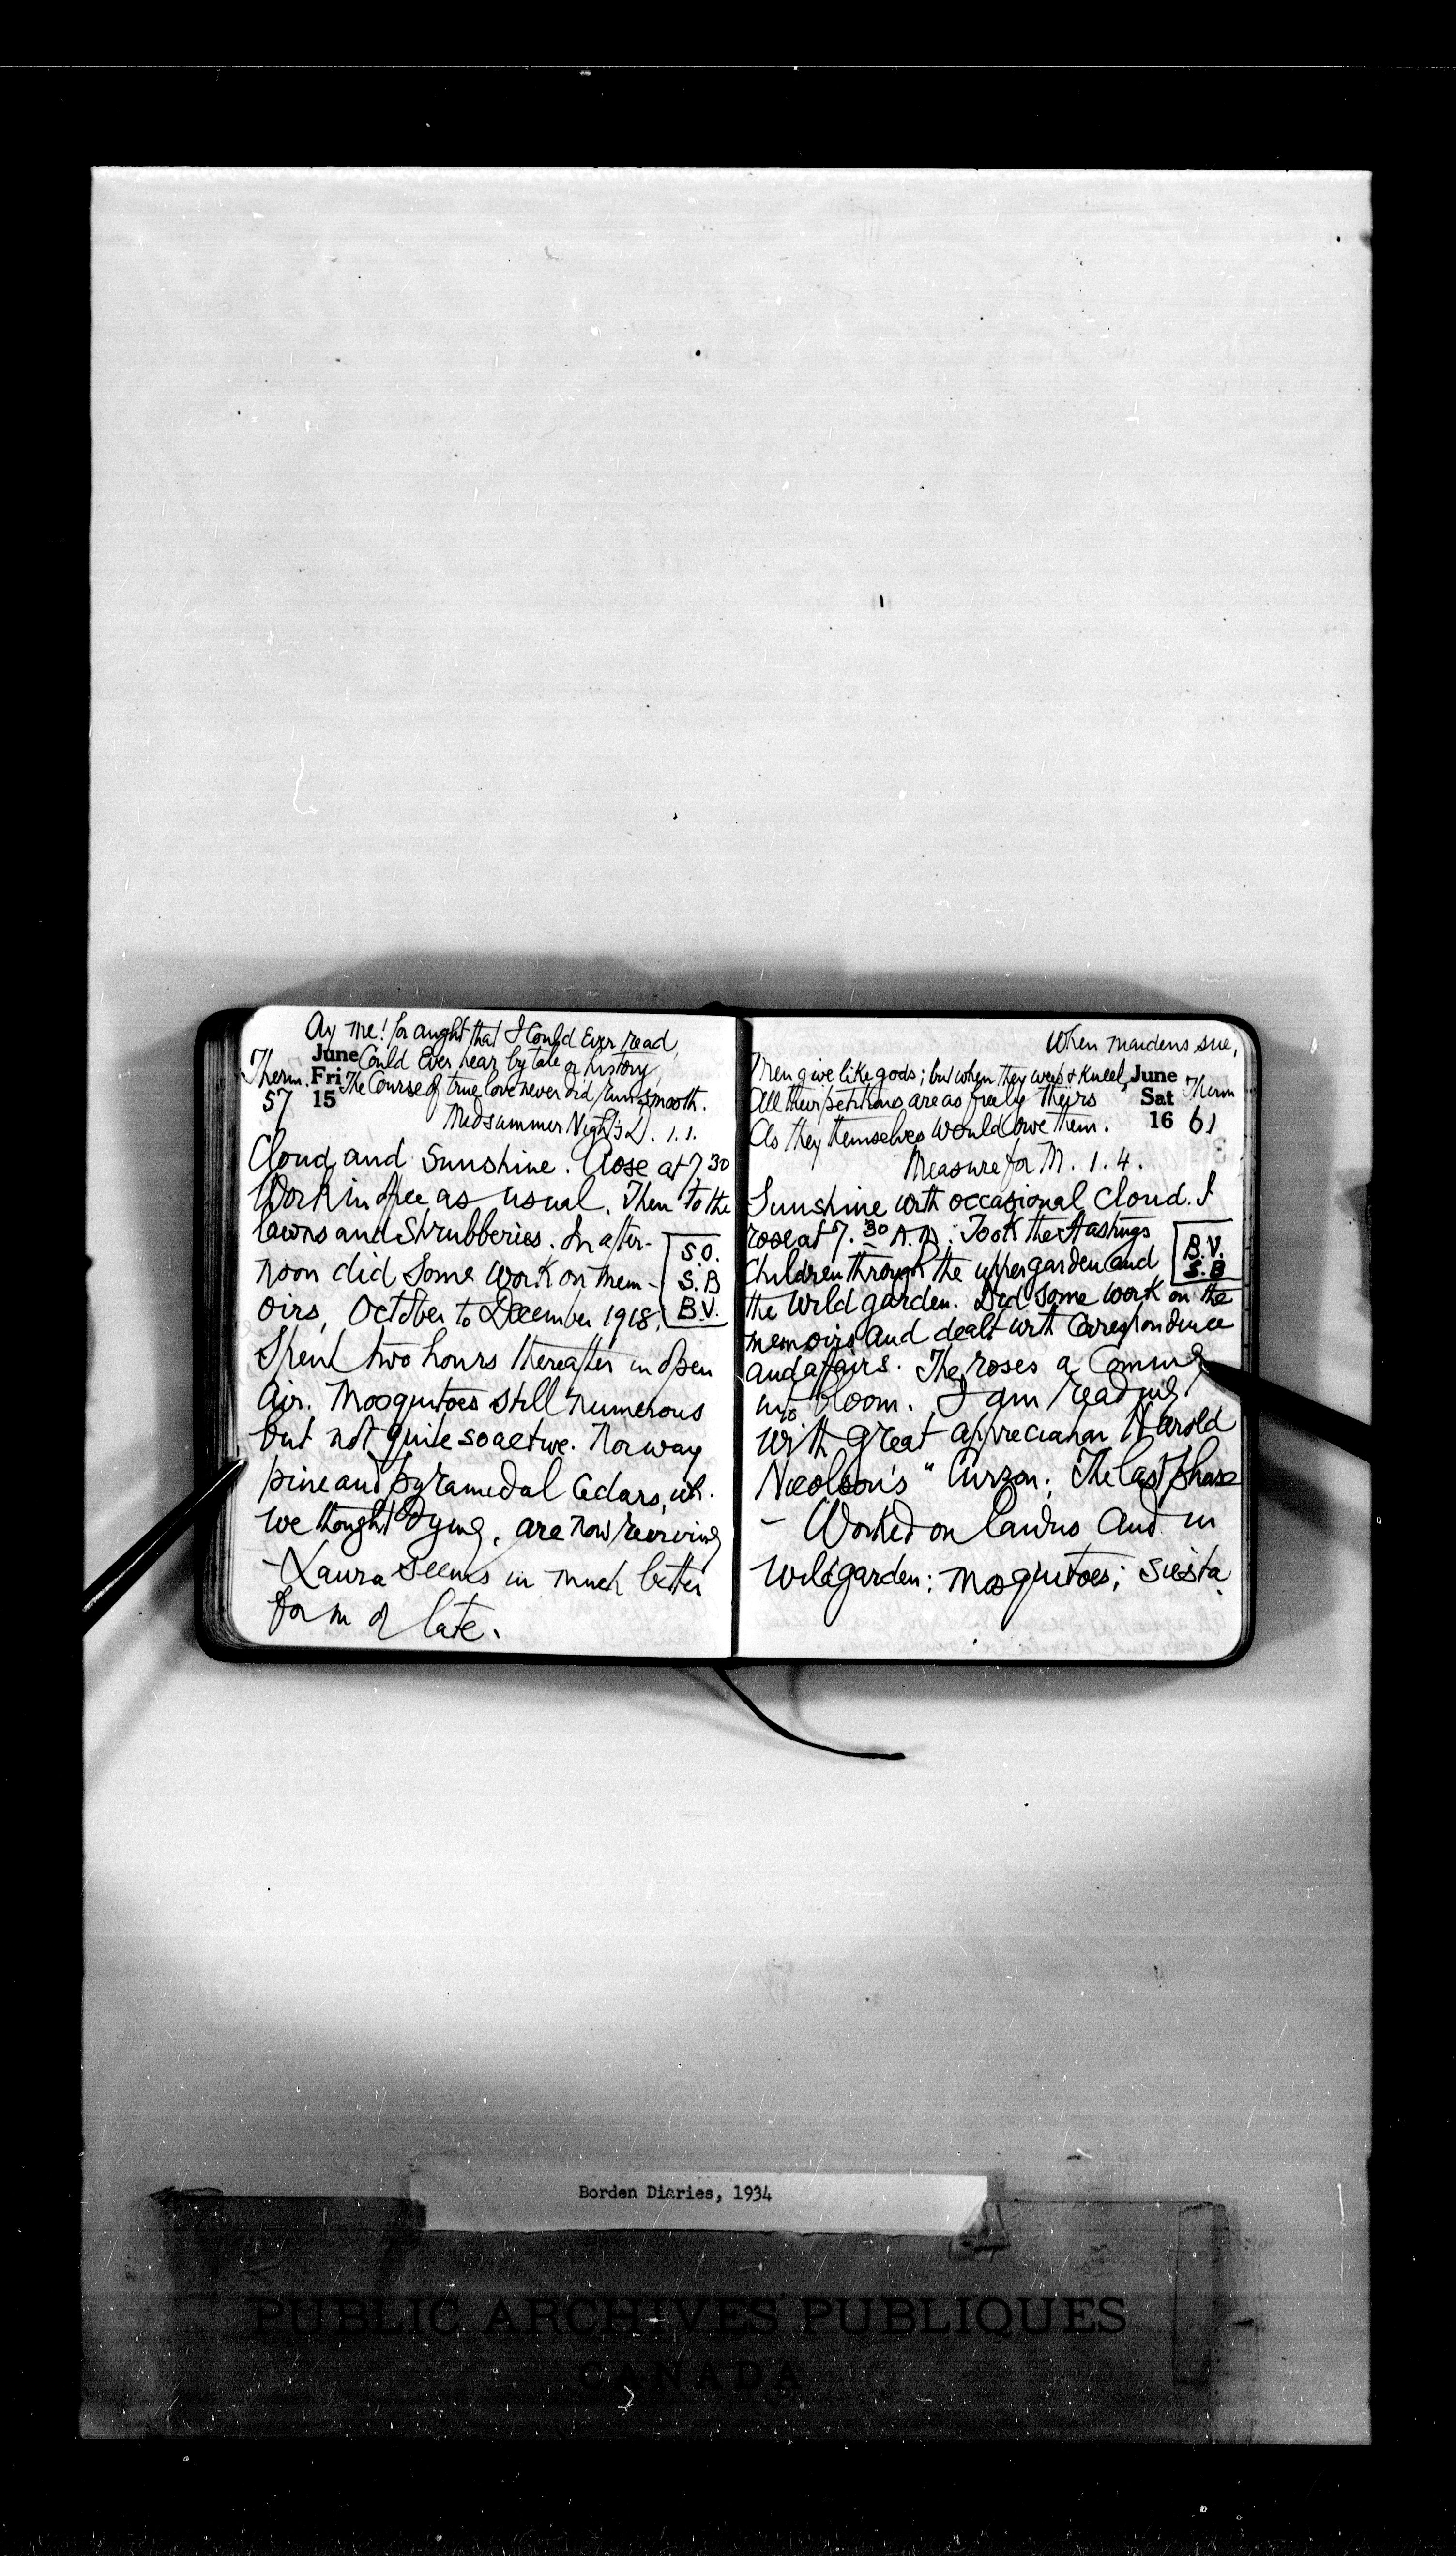 Ay me! for aught that I could ever read,
Could ever hear by tale or history,
The course of true love never did run smooth.
Midsummer Night's D. 1.1.
June
Fri
15
Therm.
57
Cloud and Sunshine. Rose at 7 30
Work in office as usual. Then to the
lawns and shrubberies. In after-
noon did some work on mem-
oirs, October to December 1918.
S.O.
S.B
B.V.
Spent two hours thereafter in open
air. Mosquitoes still numerous
but not quite so active. Norway
pine and pyramedal Cedars, wh.
we thought dying, are now reviving
- Laura seems in much better
form of late.
When maidens sue,
Men give like gods; but when they weep & kneel,
All their petitions are as freely theirs
As they themselves would owe them.
Measure for M. 1. 4.
June
Sat
16
Therm
61
Sunshine with occasional cloud. I
rose at 7. 30 A.M. Took the Hastings
Children through the upper garden and
the wild garden. Did some work on the
B.V.
S.B
memoirs and dealt with correspondence
and affairs. The roses a coming
into bloom. I am reading
with great appreciation Harold
Nicolson's "Curzon: The last phase
- Worked on lawns and in
wild garden; mosquitoes; siesta.
Borden Diaries, 1934
PUBLIC ARCHIVES PUBLIQUES
CANADA